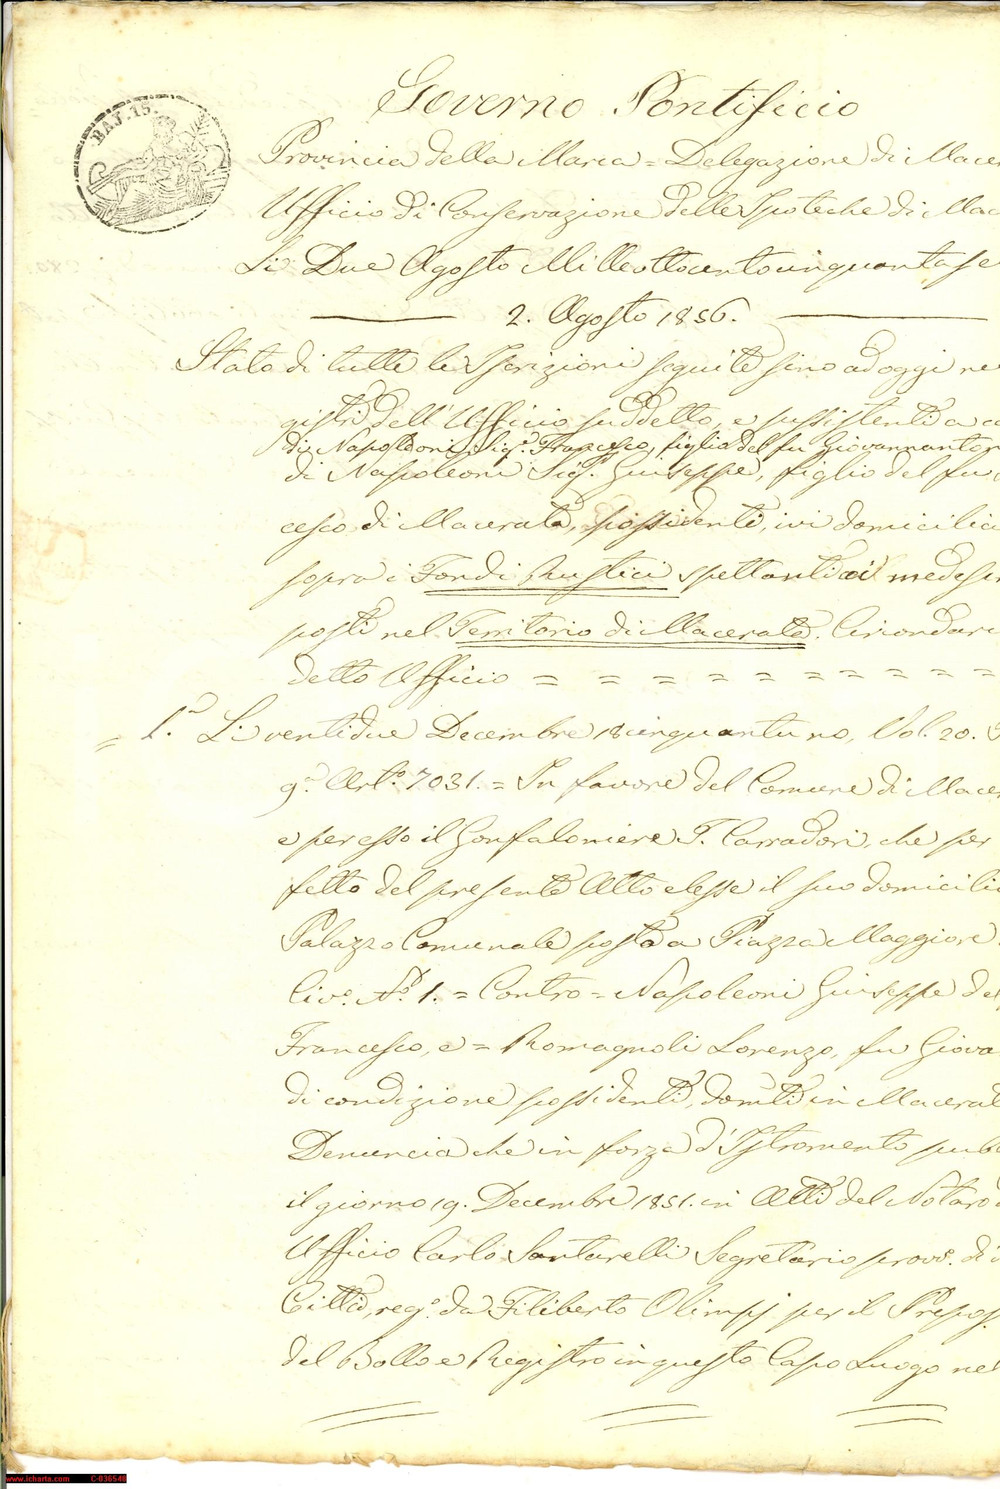 BAJ. 15.
Governo Pontificio
Provincia della Marca = Delegazione di Mace
Ufficio di Conservazione delle Ipoteche di Mac
Li Due Agosto Milleottocentocinquantase
2. Agosto 1856.
Stato di tutte le Iscrizioni seguite sino ad oggi ne
gistri dell'Ufficio suddetto, e sussistenti a c
di Napoleoni Sig.r Francesco, figlio del fu Giovannanton
di Napoleoni Sig.r Giuseppe, figlio del fu
cesco di Macerata, possidenti, ivi domicilia
sopra i Fondi Rustici spettanti ai medesim
posti nel Territorio di Macerata. Circondari
detto Ufficio = = = = = = = = =
= 1.o Li ventidue Decembre 18cinquantuno, Vol. 20.
9.o Art.o 7031. = In favore del Comune di Mace
e per esso il Gonfaloniere T. Carradori, che per
fetto del presente Atto elesse il suo domicilio
Palazzo Comunale posto a Piazza Maggiore
Civ.o N.o 1. = Contro = Napoleoni Giuseppe del
Francesco, e = Romagnoli Lorenzo, fu Giova
di condizione possidenti, domti in Macerat
Denuncia che in forza d'Istromento pub
il giorno 19. Decembre 1851. in Atti del Notaro
Ufficio Carlo Santarelli Segretario prov.o di
Città, reg.o da Filiberto Olimpj per il Prepos.
del Bollo e Registro in questo Capo Luogo nel
www.icharta.com C-036548